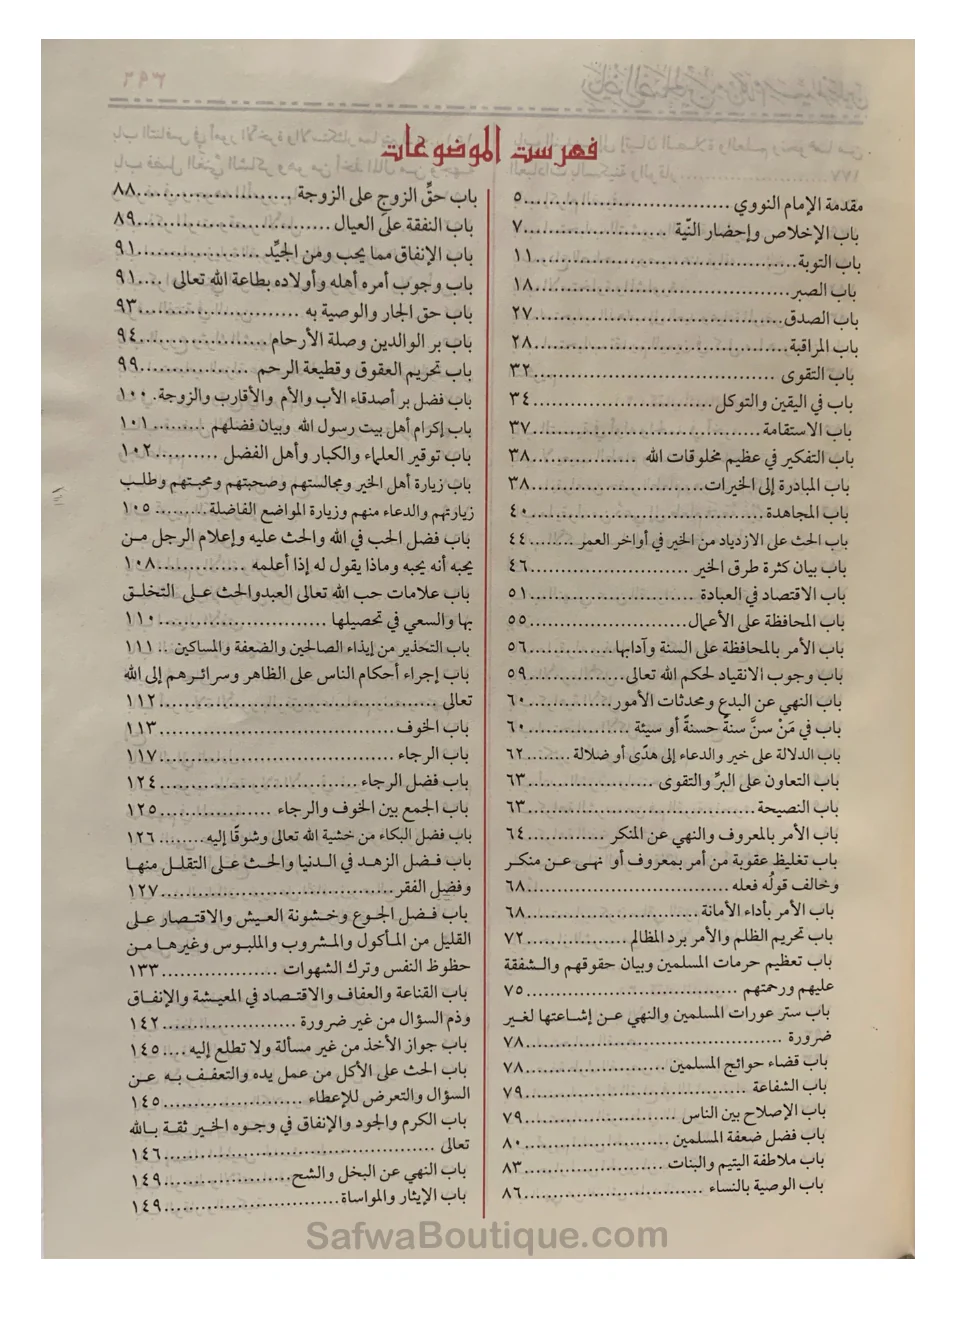 فهرست الموضوعات
مقدمة الإمام النووي ................................ ٥
باب الإخلاص وإحضار النّية ....................... ٧
باب التوبة.......................................... ١١
باب الصبر.......................................... ١٨
باب الصدق........................................ ٢٧
باب المراقبة........................................ ٢٨
باب التقوى ...................................... ٣٢
باب في اليقين والتوكل ............................. ٣٤
باب الاستقامة..................................... ٣٧
باب التفكير في عظيم مخلوقات الله ................. ٣٨
باب المبادرة إلى الخيرات............................ ٣٨
باب المجاهدة...................................... ٤٠
باب الحث على الازدياد من الخير في أواخر العمر ........ ٤٤
باب بيان كثرة طرق الخير .......................... ٤٦
باب الاقتصاد في العبادة ........................... ٥١
باب المحافظة على الأعمال.......................... ٥٥
باب الأمر بالمحافظة على السنة وآدابها.............. ٥٦
باب وجوب الانقياد لحكم الله تعالى................ ٥٩
باب النهي عن البدع ومحدثات الأمور.............. ٦٠
باب في مَنْ سنَّ سنةً حسنةً أو سيئة ................. ٦٠
باب الدلالة على خير والدعاء إلى هدًى أو ضلالة ........ ٦٢
باب التعاون على البرِّ والتقوى ..................... ٦٣
باب النصيحة..................................... ٦٣
باب الأمر بالمعروف والنهي عن المنكر ............. ٦٤
باب تغليظ عقوبة من أمر بمعروف أو نهى عن منكر
وخالف قولُه فعله ................................. ٦٨
باب الأمر بأداء الأمانة............................ ٦٨
باب تحريم الظلم والأمر برد المظالم ................. ٧٢
باب تعظيم حرمات المسلمين وبيان حقوقهم والشفقة
عليهم ورحمتهم .................................. ٧٥
باب ستر عورات المسلمين والنهي عن إشاعتها لغير
ضرورة .......................................... ٧٨
باب قضاء حوائج المسلمين ....................... ٧٨
باب الشفاعة .................................... ٧٩
باب الإصلاح بين الناس .......................... ٧٩
باب فضل ضعفة المسلمين ........................ ٨٠
باب ملاطفة اليتيم والبنات ....................... ٨٣
باب الوصية بالنساء .............................. ٨٦
باب حقِّ الزوج على الزوجة ........................ ٨٨
باب النفقة على العيال ............................ ٨٩
باب الإنفاق مما يحب ومن الجيِّد ................... ٩١
باب وجوب أمره أهله وأولاده بطاعة الله تعالى .... ٩١
باب حق الجار والوصية به ......................... ٩٣
باب بر الوالدين وصلة الأرحام..................... ٩٤
باب تحريم العقوق وقطيعة الرحم ................. ٩٩
باب فضل بر أصدقاء الأب والأم والأقارب والزوجة. ١٠٠
باب إكرام أهل بيت رسول الله وبيان فضلهم ......... ١٠١
باب توقير العلماء والكبار وأهل الفضل .......... ١٠٢
باب زيارة أهل الخير ومجالستهم وصحبتهم ومحبتهم وطلب
زيارتهم والدعاء منهم وزيارة المواضع الفاضلة......... ١٠٥
باب فضل الحب في الله والحث عليه وإعلام الرجل من
يحبه أنه يحبه وماذا يقول له إذا أعلمه .............. ١٠٨
باب علامات حب الله تعالى العبدوالحث على التخلق
بها والسعي في تحصيلها ........................... ١١٠
باب التحذير من إيذاء الصالحين والضعفة والمساكين .. ١١١
باب إجراء أحكام الناس على الظاهر وسرائرهم إلى الله
تعالى ............................................. ١١٢
باب الخوف...................................... ١١٣
باب الرجاء ...................................... ١١٧
باب فضل الرجاء ................................. ١٢٤
باب الجمع بين الخوف والرجاء .................. ١٢٥
باب فضل البكاء من خشية الله تعالى وشوقًا إليه........ ١٢٦
باب فضل الزهد في الدنيا والحث على التقلل منها
وفضل الفقر...................................... ١٢٧
باب فضل الجوع وخشونة العيش والاقتصار على
القليل من المأكول والمشروب والملبوس وغيرها من
حظوظ النفس وترك الشهوات ................... ١٣٣
باب القناعة والعفاف والاقتصاد في المعيشة والإنفاق
وذم السؤال من غير ضرورة ...................... ١٤٢
باب جواز الأخذ من غير مسألة ولا تطلع إليه.... ١٤٥
باب الحث على الأكل من عمل يده والتعفف به عن
السؤال والتعرض للإعطاء ....................... ١٤٥
باب الكرم والجود والإنفاق في وجوه الخير ثقة بالله
تعالى ............................................ ١٤٦
باب النهي عن البخل والشح..................... ١٤٩
باب الإيثار والمواساة............................. ١٤٩
SafwaBoutique.com